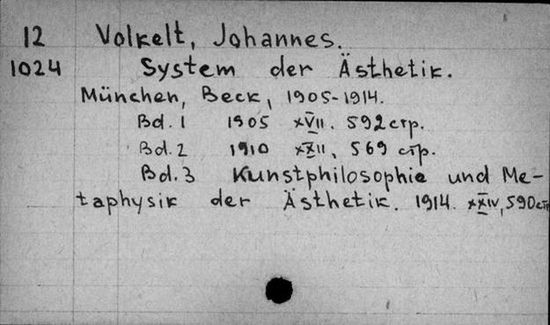 12 Volkelt, Johannes.
1024 System der Ästhetik.
München, Beck, 1905-1914.
Bd. 1 1905 XVII. 592 стр.
Bd. 2 1910 XXII, 569 стр.
Bd. 3 Kunstphilosophie und Me-
taphysik der Ästhetik. 1914. XXIV, 590 стр